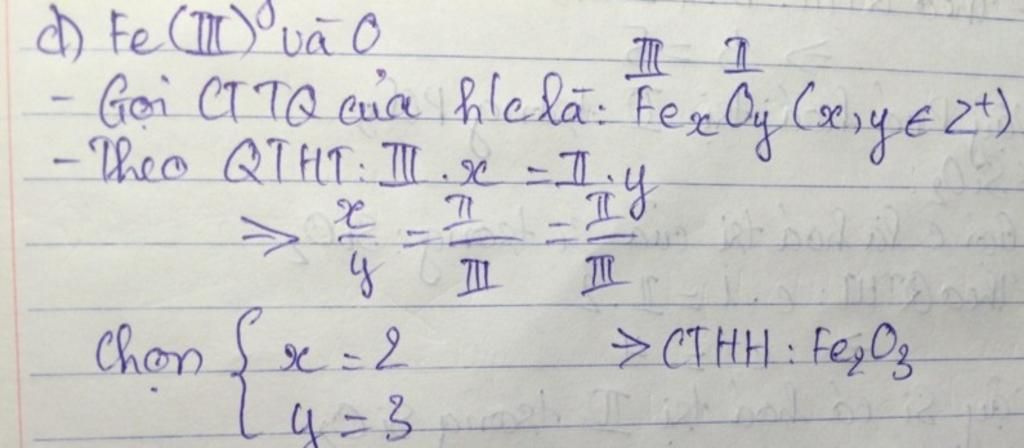 d) Fe (III) và O
III II
- Gọi CTTQ của h/c là: FexOy (x, y ∈ Z+)
- Theo QTHT: III . x = II . y
=> x/y = II/III = II/III
Chọn { x = 2 => CTHH: Fe2O3
y = 3